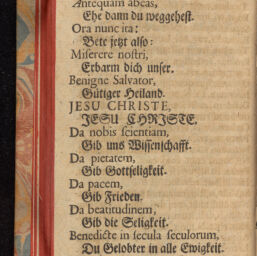 Antequam abeas,
Ehe dann du weggehest.
Ora nunc ita:
Bete jetzt also:
Miserere nostri,
Erbarm dich unser.
Benigne Salvator,
Gütiger Heiland.
JESU CHRISTE,
JESU CHRISTE.
Da nobis scientiam,
Gib uns Wissenschafft.
Da pietatem,
Gib Gottseligkeit.
Da pacem,
Gib Frieden.
Da beatitudinem,
Gib die Seligkeit.
Benedicte in secula seculorum,
Du Gelobter in alle Ewigkeit.